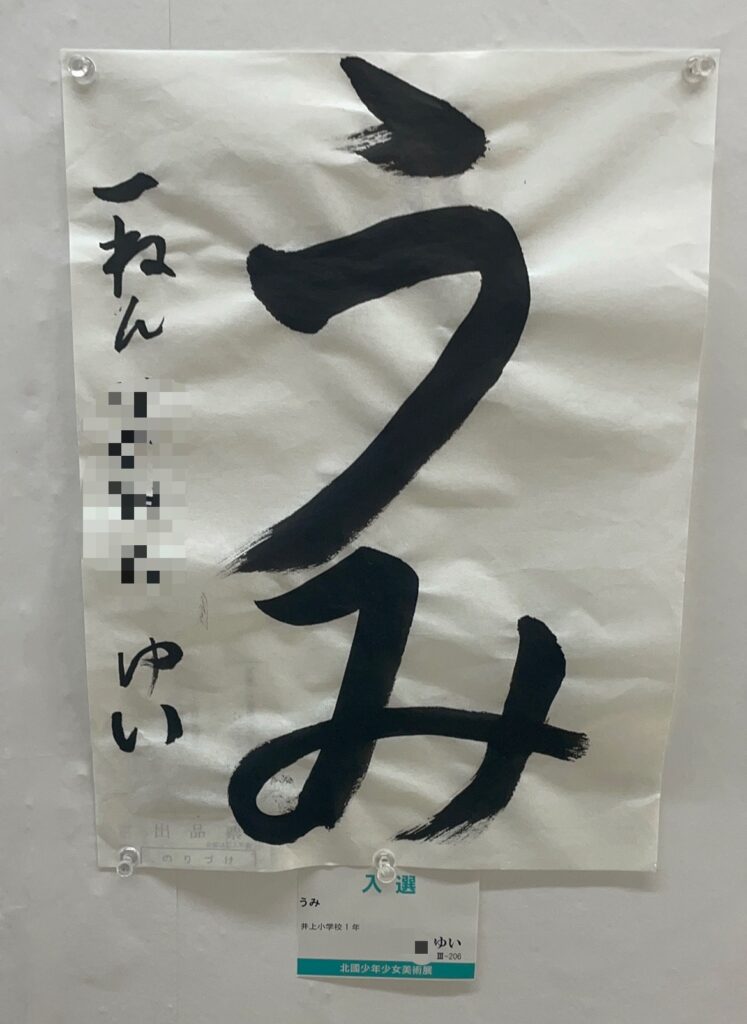 うみ
一ねん
ゆい
出品票
のりづけ
入選
うみ
井上小学校1年
ゆい
Ⅲ-206
北國少年少女美術展